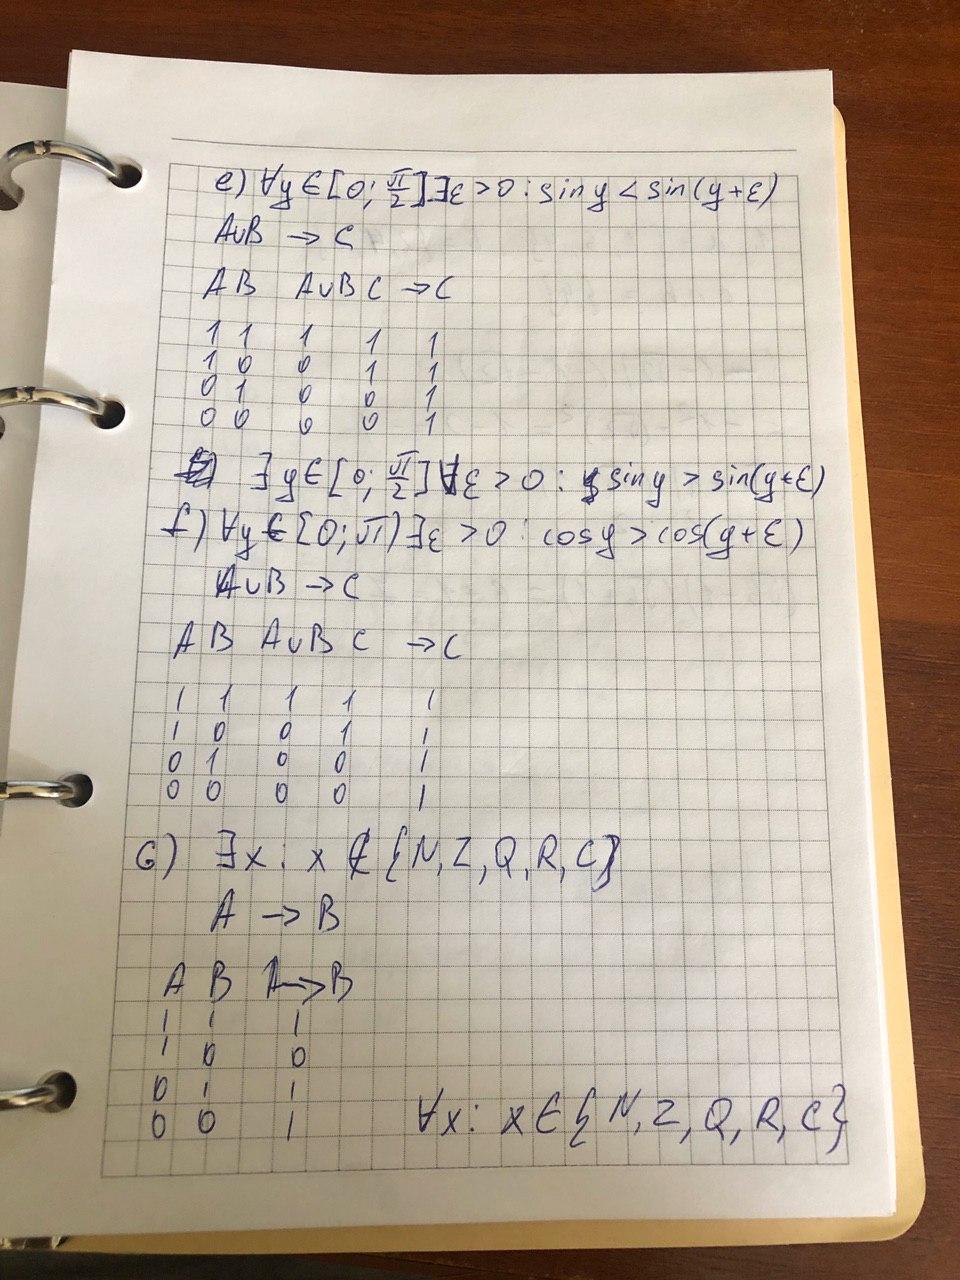 e) ∀y∈[0; π/2]∃ε>0: sin y < sin(y+ε)
A∪B → C
A B A∪B C → C
1 1 1 1 1
1 0 0 1 1
0 1 0 0 1
0 0 0 0 1
∃y∈[0; π/2]∀ε>0: sin y > sin(y+ε)
f) ∀y∈[0; π)∃ε>0: cos y > cos(y+ε)
A∪B → C
A B A∪B C → C
1 1 1 1 1
1 0 0 1 1
0 1 0 0 1
0 0 0 0 1
6) ∃x: x∉{N, Z, Q, R, C}
A → B
A B A→B
1 1 1
1 0 0
0 1 1
0 0 1 ∀x: x∈{N, Z, Q, R, C}